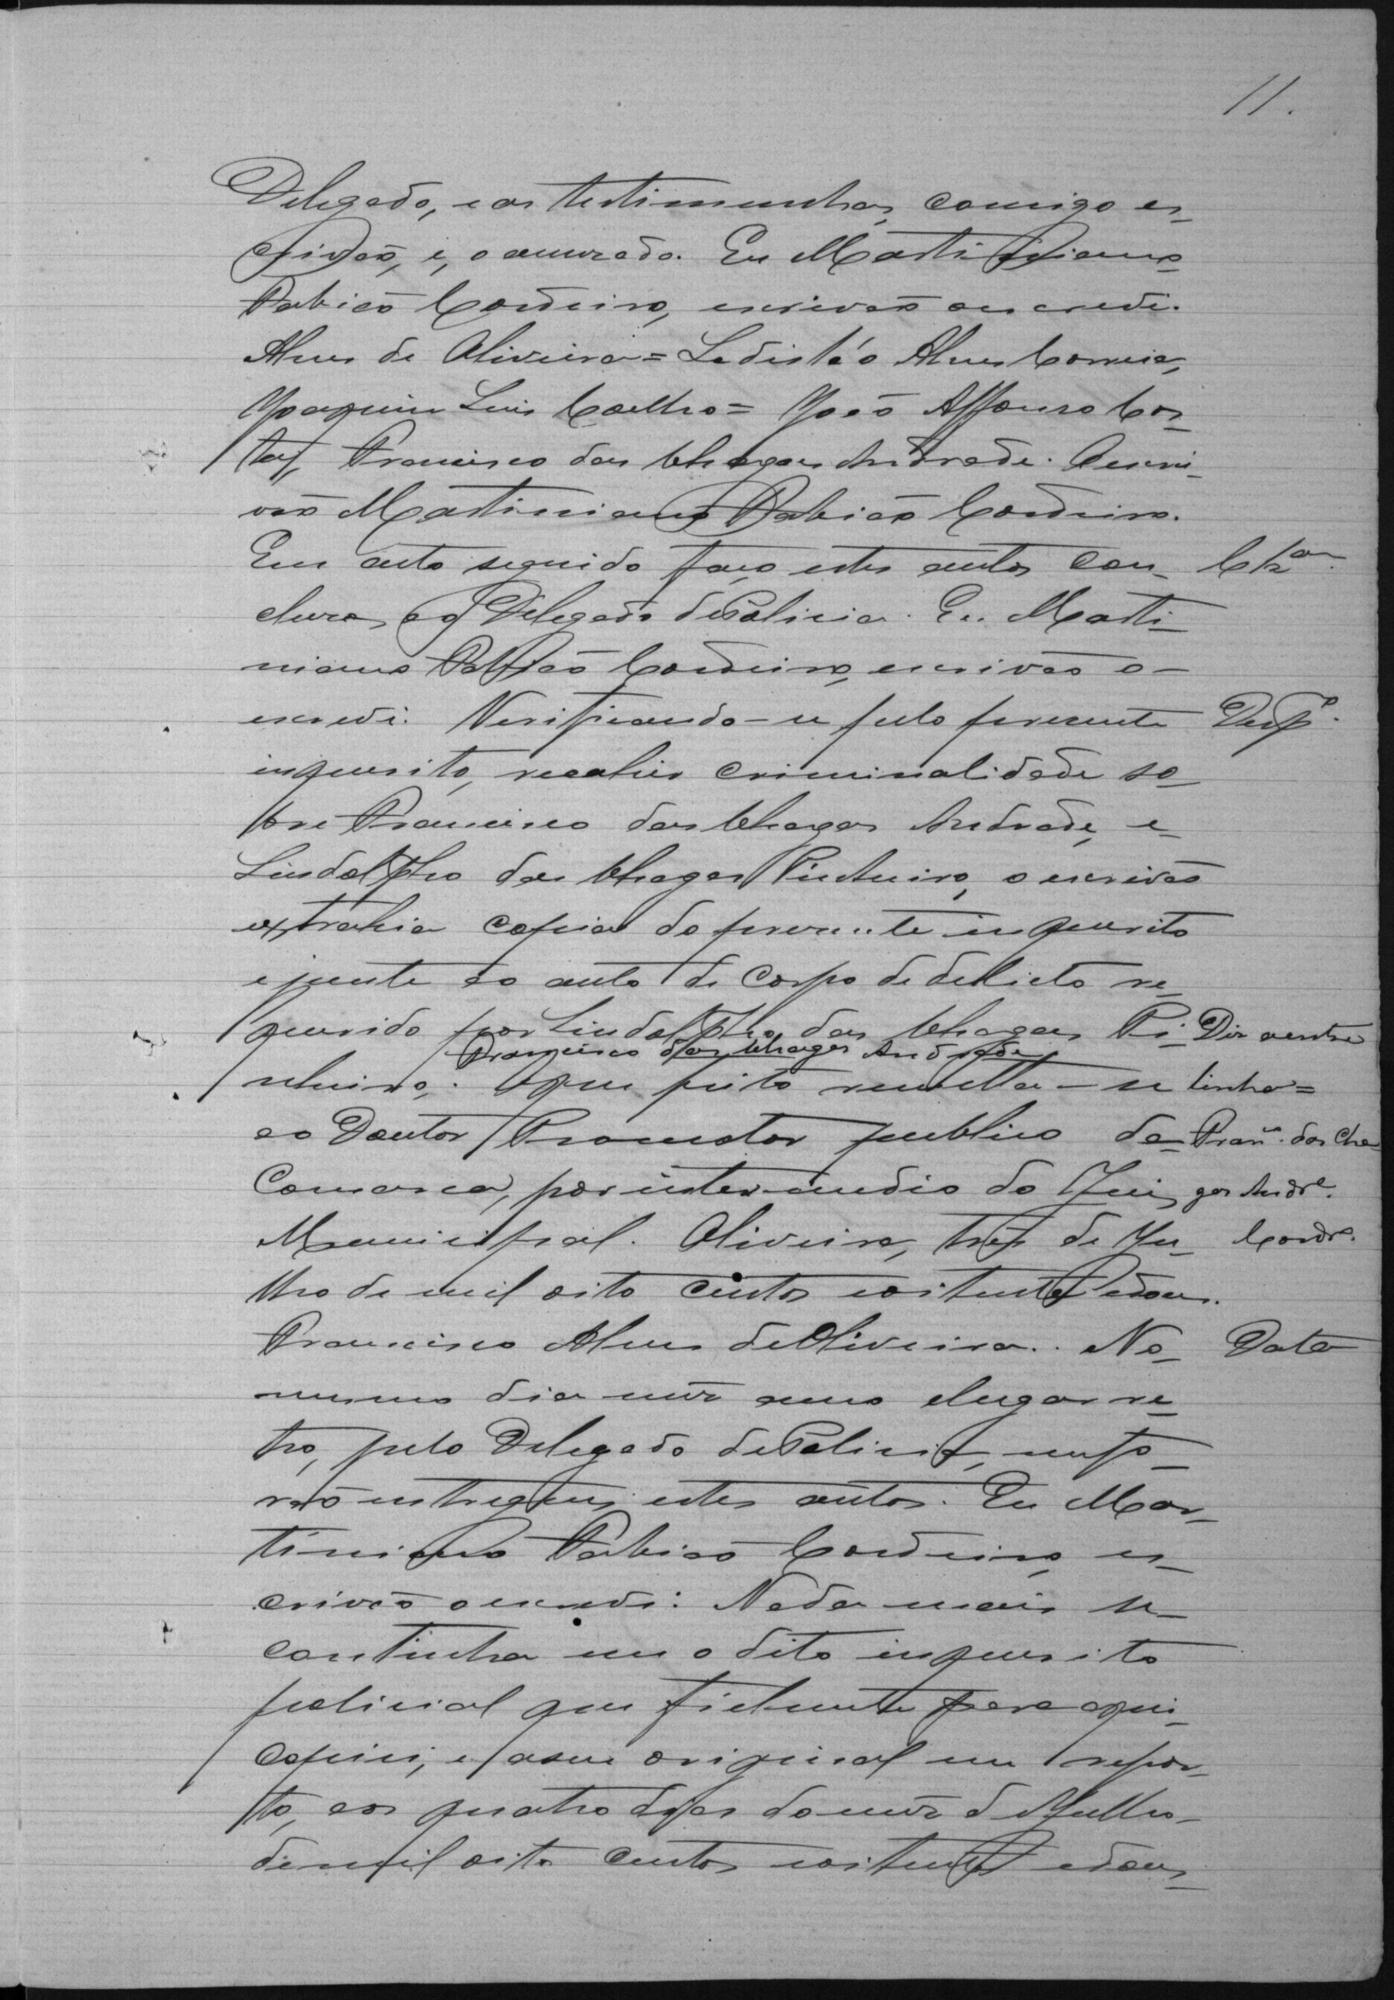 11.
Delegado, e as testimunhas, comigo es-
crivão, e, o accuzado. Eu Martiniano
Rabicão Cordeiro, escrivão o escredi.
Alves de Oliveira = Ledisláo Alves Correia,
Joaquim Luis Coelho = João Affonso Cos-
ta, Francisco das Chagas Andrade. O escri-
vão Martiniano Cordeiro.
Em acto seguido faço estes autos con- Clz.am
cluzos ao Delegado de Policia. Eu Marti-
niano Cordeiro, escrivão o-
escrevi. Verificando-se pelo presente Desp.o
inquerito, recahir criminalidade so-
bre Francisco das Chagas Andrade, e-
Lindolpho das Chagas Pinheiro, o escrivão
extrahia copia do presente inquerito
e junte ao auto de corpo de delicto re-
querido por Lindolpho das Chagas Pi- Diz a entre
Francisco das Chagas Andrade
nheiro,. O que feito remetta-se linha =
ao Doutor Promotor publico da- Fran.co das Cha
Comarca, por intermedio do Juiz gas Andr.e
Municipal. Oliveira, trez de Ju- Cordr.o
lho de mil oito centos e oitenta e dous.
Francisco Alves de Oliveira.. No- Data
mesmo dia mêz anno e lugar re-
tro, pelo Delegado de Policia, me fo-
rão entregues estes autos. Eu Mar-
tiniano Cordeiro, es-
crivão o escredi: Nada mais se-
continha em o dito inquerito
policial que fielmente para aqui-
copiei, e ao seu original me repor-
to, aos quatro dias do mêz de Julho-
de mil oito centos e oitenta e dous-